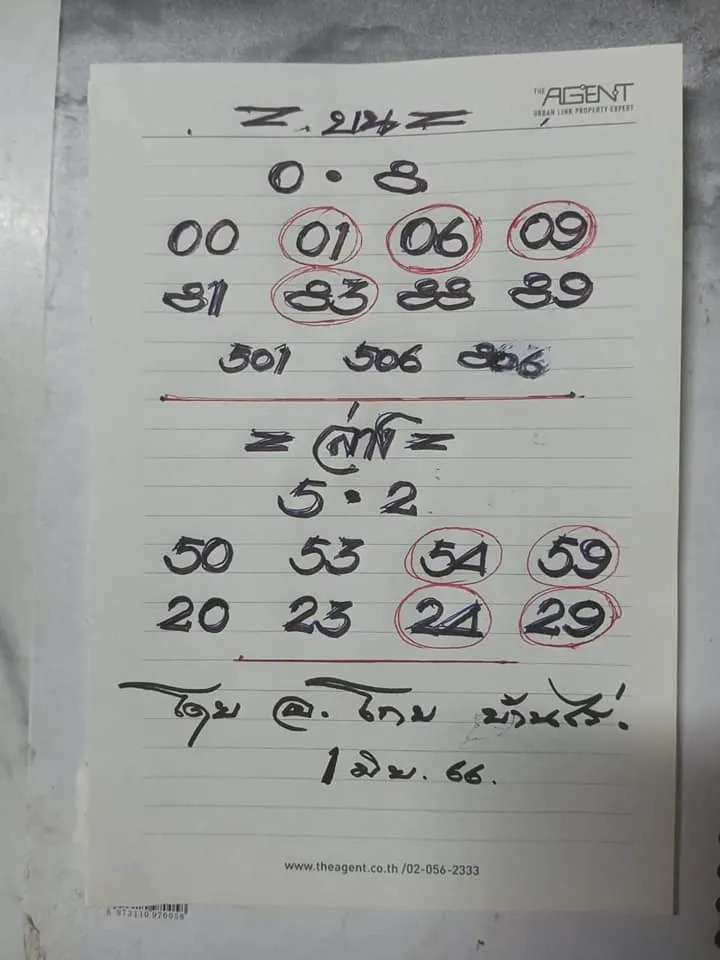 THE AGENT
URBAN LINK PROPERTY EXPERT
= บน =
0 · 8
00 01 06 09
81 83 88 89
501 506 806
= ล่าง =
5 · 2
50 53 54 59
20 23 24 29
โดย อ. โกย บ้านไร่.
1 มิย. 66.
www.theagent.co.th /02-056-2333
8 973110 970058